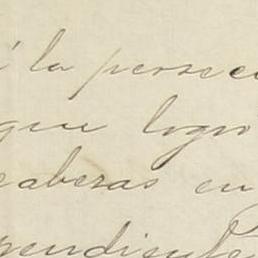 á la persecu
que logró
cabezas en
pendiente